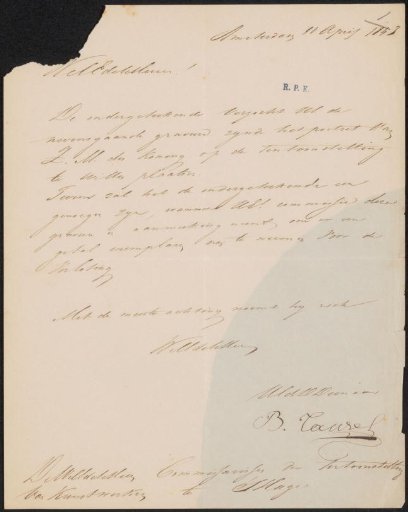 Amsterdam 18 April 1853
1
WelEdele Heeren!
R. P. K.
De ondergeteekende verzoekt UE de
nevensgaande gravure zynde het portret van
Z. M. den Koning op de tentoonstelling
te willen plaatsen
Tevens zal het de ondergeteekende
genoegen zyn, wanneer UEd commissie deze
gravure in aanmerking neemt, om er een
getal exemplaren van te nemen voor de
Verloting
Met de meeste achting noemt hy zich
WelEdele Heeren
UEd Dienaar
B. Taurel
De WelEdele Heeren Commissarissen der Tentoonstelling
van Kunstwerken te 's Hage